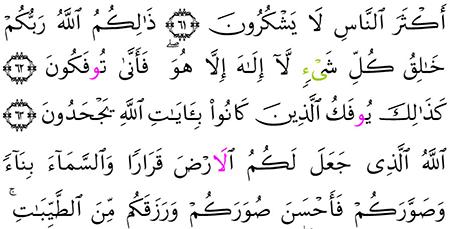 أَكْثَرَ ٱلنَّاسِ لَا يَشْكُرُونَ ۝٦١ ذَٰلِكُمُ ٱللَّهُ رَبُّكُمْ
خَٰلِقُ كُلِّ شَىْءٍ لَّآ إِلَٰهَ إِلَّا هُوَ ۖ فَأَنَّىٰ تُوفَكُونَ ۝٦٢
كَذَٰلِكَ يُوفَكُ ٱلَّذِينَ كَانُوا۟ بِـَٔايَٰتِ ٱللَّهِ يَجْحَدُونَ ۝٦٣
ٱللَّهُ ٱلَّذِى جَعَلَ لَكُمُ ٱلَارْضَ قَرَارًا وَٱلسَّمَآءَ بِنَآءً
وَصَوَّرَكُمْ فَأَحْسَنَ صُوَرَكُمْ وَرَزَقَكُم مِّنَ ٱلطَّيِّبَٰتِ ۚ